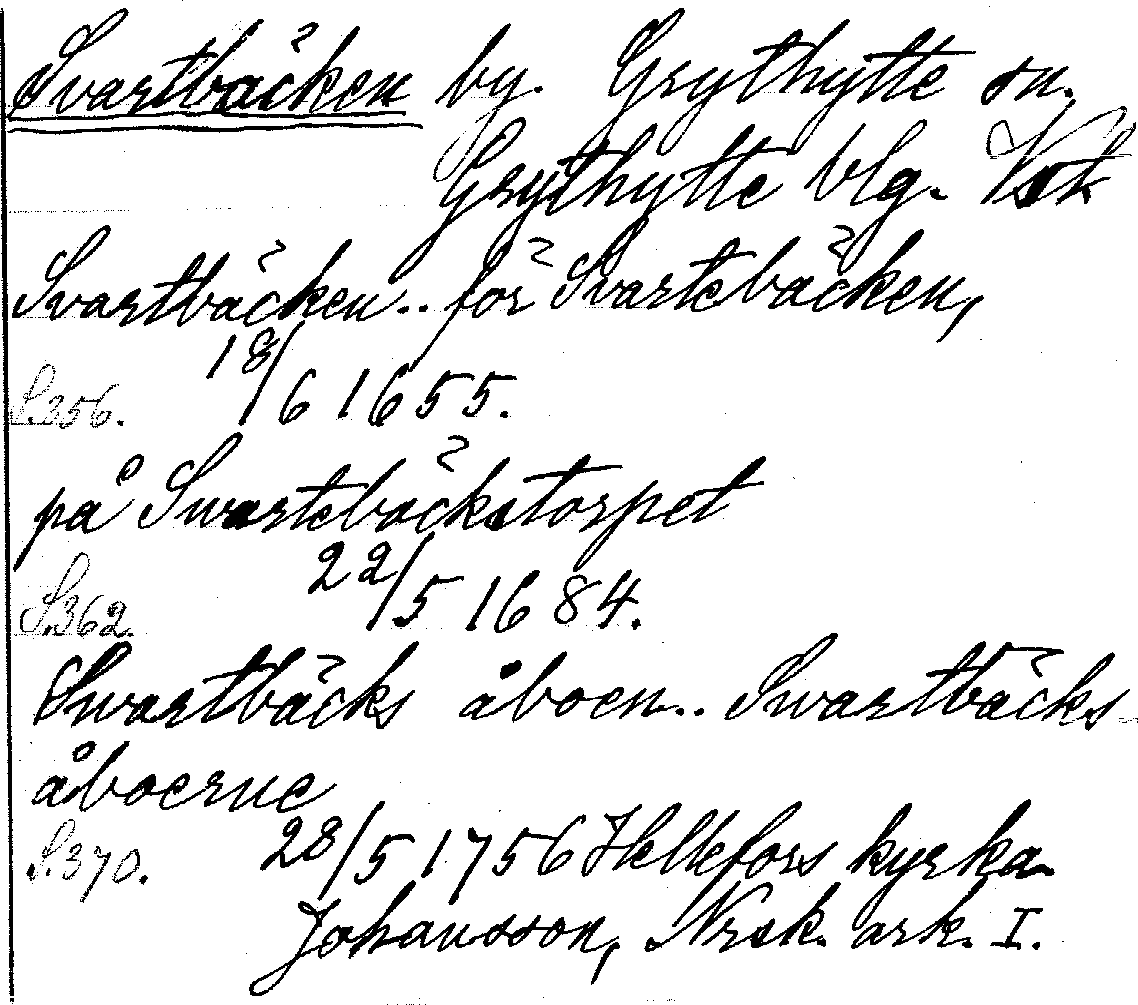 Svartbäcken by. Grythytte sn.
Grythytte blg. Vstm
Svartbäcken.. för Svartebäcken,
18/6 1655.
S.356.
på Swartebäckstorpet
22/5 1684.
S.362.
Swartbäcks åboen.. Swartbäcks-
åboerne
S.370. 28/5 1756 Hellefors kyrka
Johansson, Nrsk. ark. I.